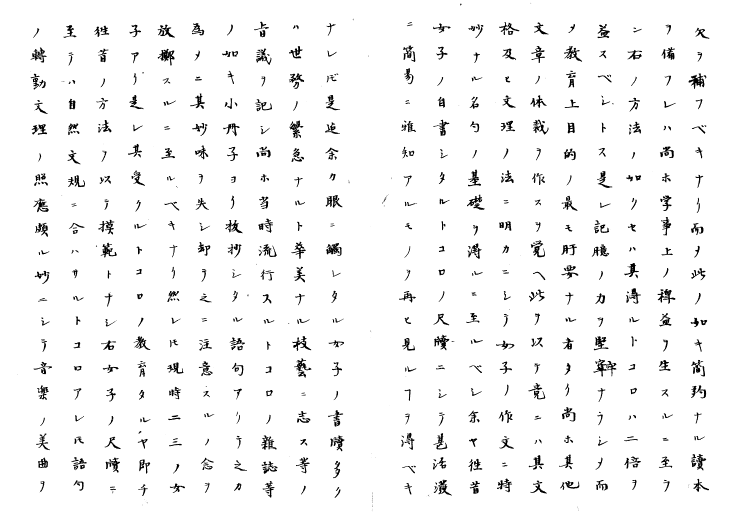 欠ヲ補フベキナリ而メ此ノ如キ簡約ナル讀本
ヲ備フレハ尚ホ学事上ノ裨益ヲ生スルニ至ラ
ン右ノ方法ノ如クセハ其得ルトコロハ二倍ヲ
益スベシトス是レ記臆ノ力ヲ堅牢ナラシメ而
メ教育上目的ノ最モ肝要ナル者タリ尚ホ其他
文章ノ体裁ヲ作スヲ覚ヘ此ヲ以テ竟ニハ其文
格及ヒ文理ノ法ニ明カニシテ女子ノ作文ニ特
妙ナル名勺ノ基礎ヲ得ルニ至ルベシ余ヤ往昔
女子ノ自書シタルトコロノ尺牘ニシテ甚活溌
ニ簡易ニ雅知アルモノヲ再ヒ見ルヿヲ得ベキ
ナレ𪜈是迠余カ眼ニ觸レタル女子ノ書牘多ク
ハ世務ノ繁急ナルト華美ナル枝藝ニ志ス等ノ
旨議ヲ記シ尚ホ当時流行スルトコロノ雜誌等
ノ如キ小冊子ヨリ抜抄シタル語句アリテ之カ
為メニ其妙味ヲ失シ却テ之ニ注意スルノ念ヲ
放擲スルニ至ルベキナリ然レ𪜈現時二三ノ女
子アリ是レ其受クルトコロノ教育タルヤ即チ
徃昔ノ方法ヲ以テ摸範トナシ右女子ノ尺牘ニ
至テハ自然文規ニ合ハサルトコロアレ𪜈語勺
ノ轉動文理ノ照應頗ル妙ニシテ音樂ノ美曲ヲ